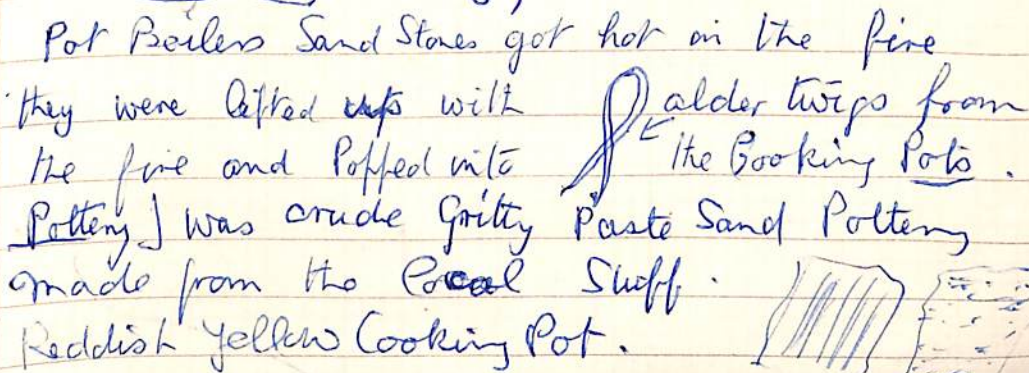 Pot Boilers Sand Stones got hot in the fire
they were lifted up with alder twigs from
the fire and Popped into the Cooking Pots.
Pottery] was crude Gritty Paste Sand Pottery
made from the local Stuff.
Reddish Yellow Cooking Pot.